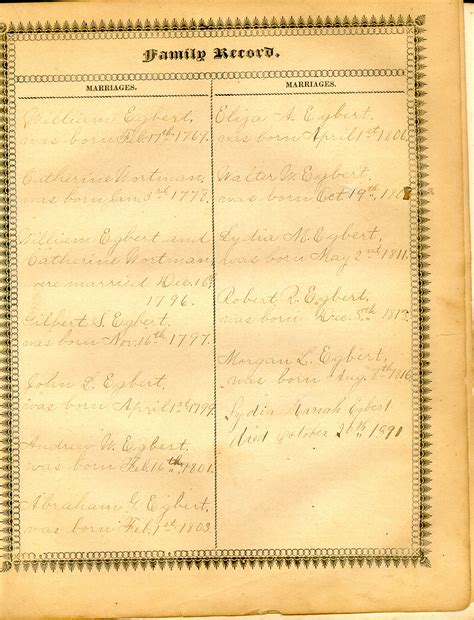 Family Record.
MARRIAGES.
William Egbert,
was born Feb. 17th 1769.
Catherine Wortman,
was born Jan. 3rd 1778.
William Egbert and
Catherine Wortman
were married Dec. 16th
1796.
Gilbert S. Egbert,
was born Nov. 16th 1797.
John L. Egbert,
was born April 1st 1799.
Andrew W. Egbert,
was born Feb. 16th 1801.
Abraham G. Egbert,
was born Feb. 1st 1803.
MARRIAGES.
Eliza A. Egbert,
was born April 1st 1806.
Walter W. Egbert,
was born Oct 19th 1808
Lydia M. Egbert,
was born May 2nd 1811.
Robert R. Egbert,
was born Dec. 8th 1813.
Morgan L. Egbert,
was born Aug. 8th 1816.
Lydia Mariah Egbert
died October 26th 1890